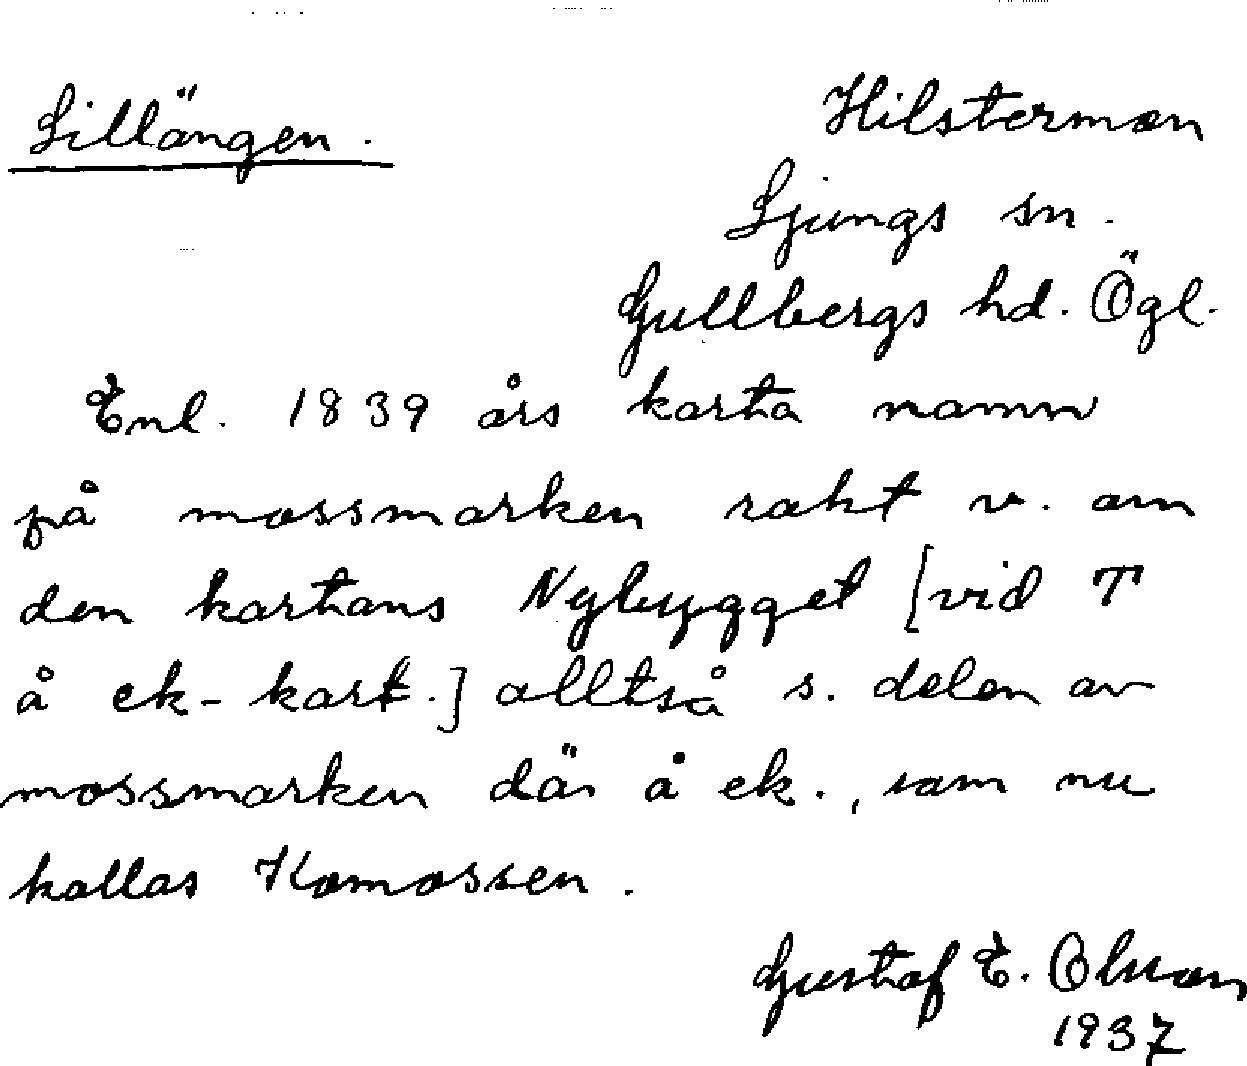 Lillängen.
Hilstermon
Ljungs sn.
Gullbergs hd. Ögl.
Enl. 1839 års karta namn
på mossmarken rakt v. om
den kartans Nybygget [vid T
å ek-kart.] alltså s. delen av
mossmarken där å ek., som nu
kallas Komossen.
Gustaf E. Olsson
1937